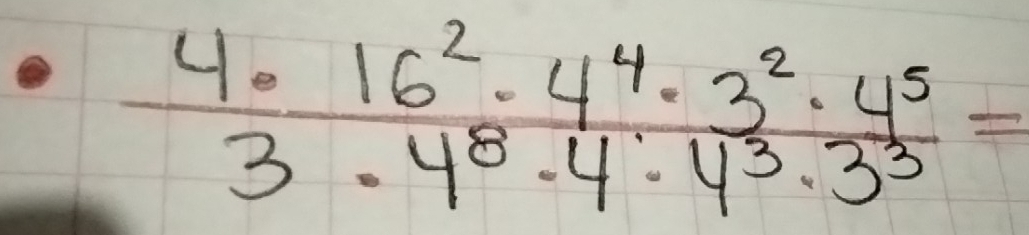 4 · 16² · 4⁴ · 3² · 4⁵ =
3 · 4⁸ · 4 · 4³ · 3³